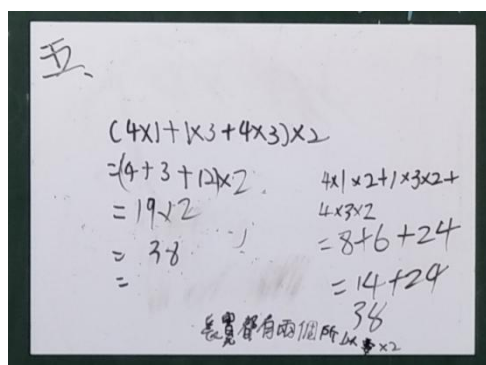 五、
(4×1+1×3+4×3)×2
=(4+3+12)×2
=19×2
=38
=
4×1×2+1×3×2+
4×3×2
=8+6+24
=14+24
38
長寬都有兩個所以×2